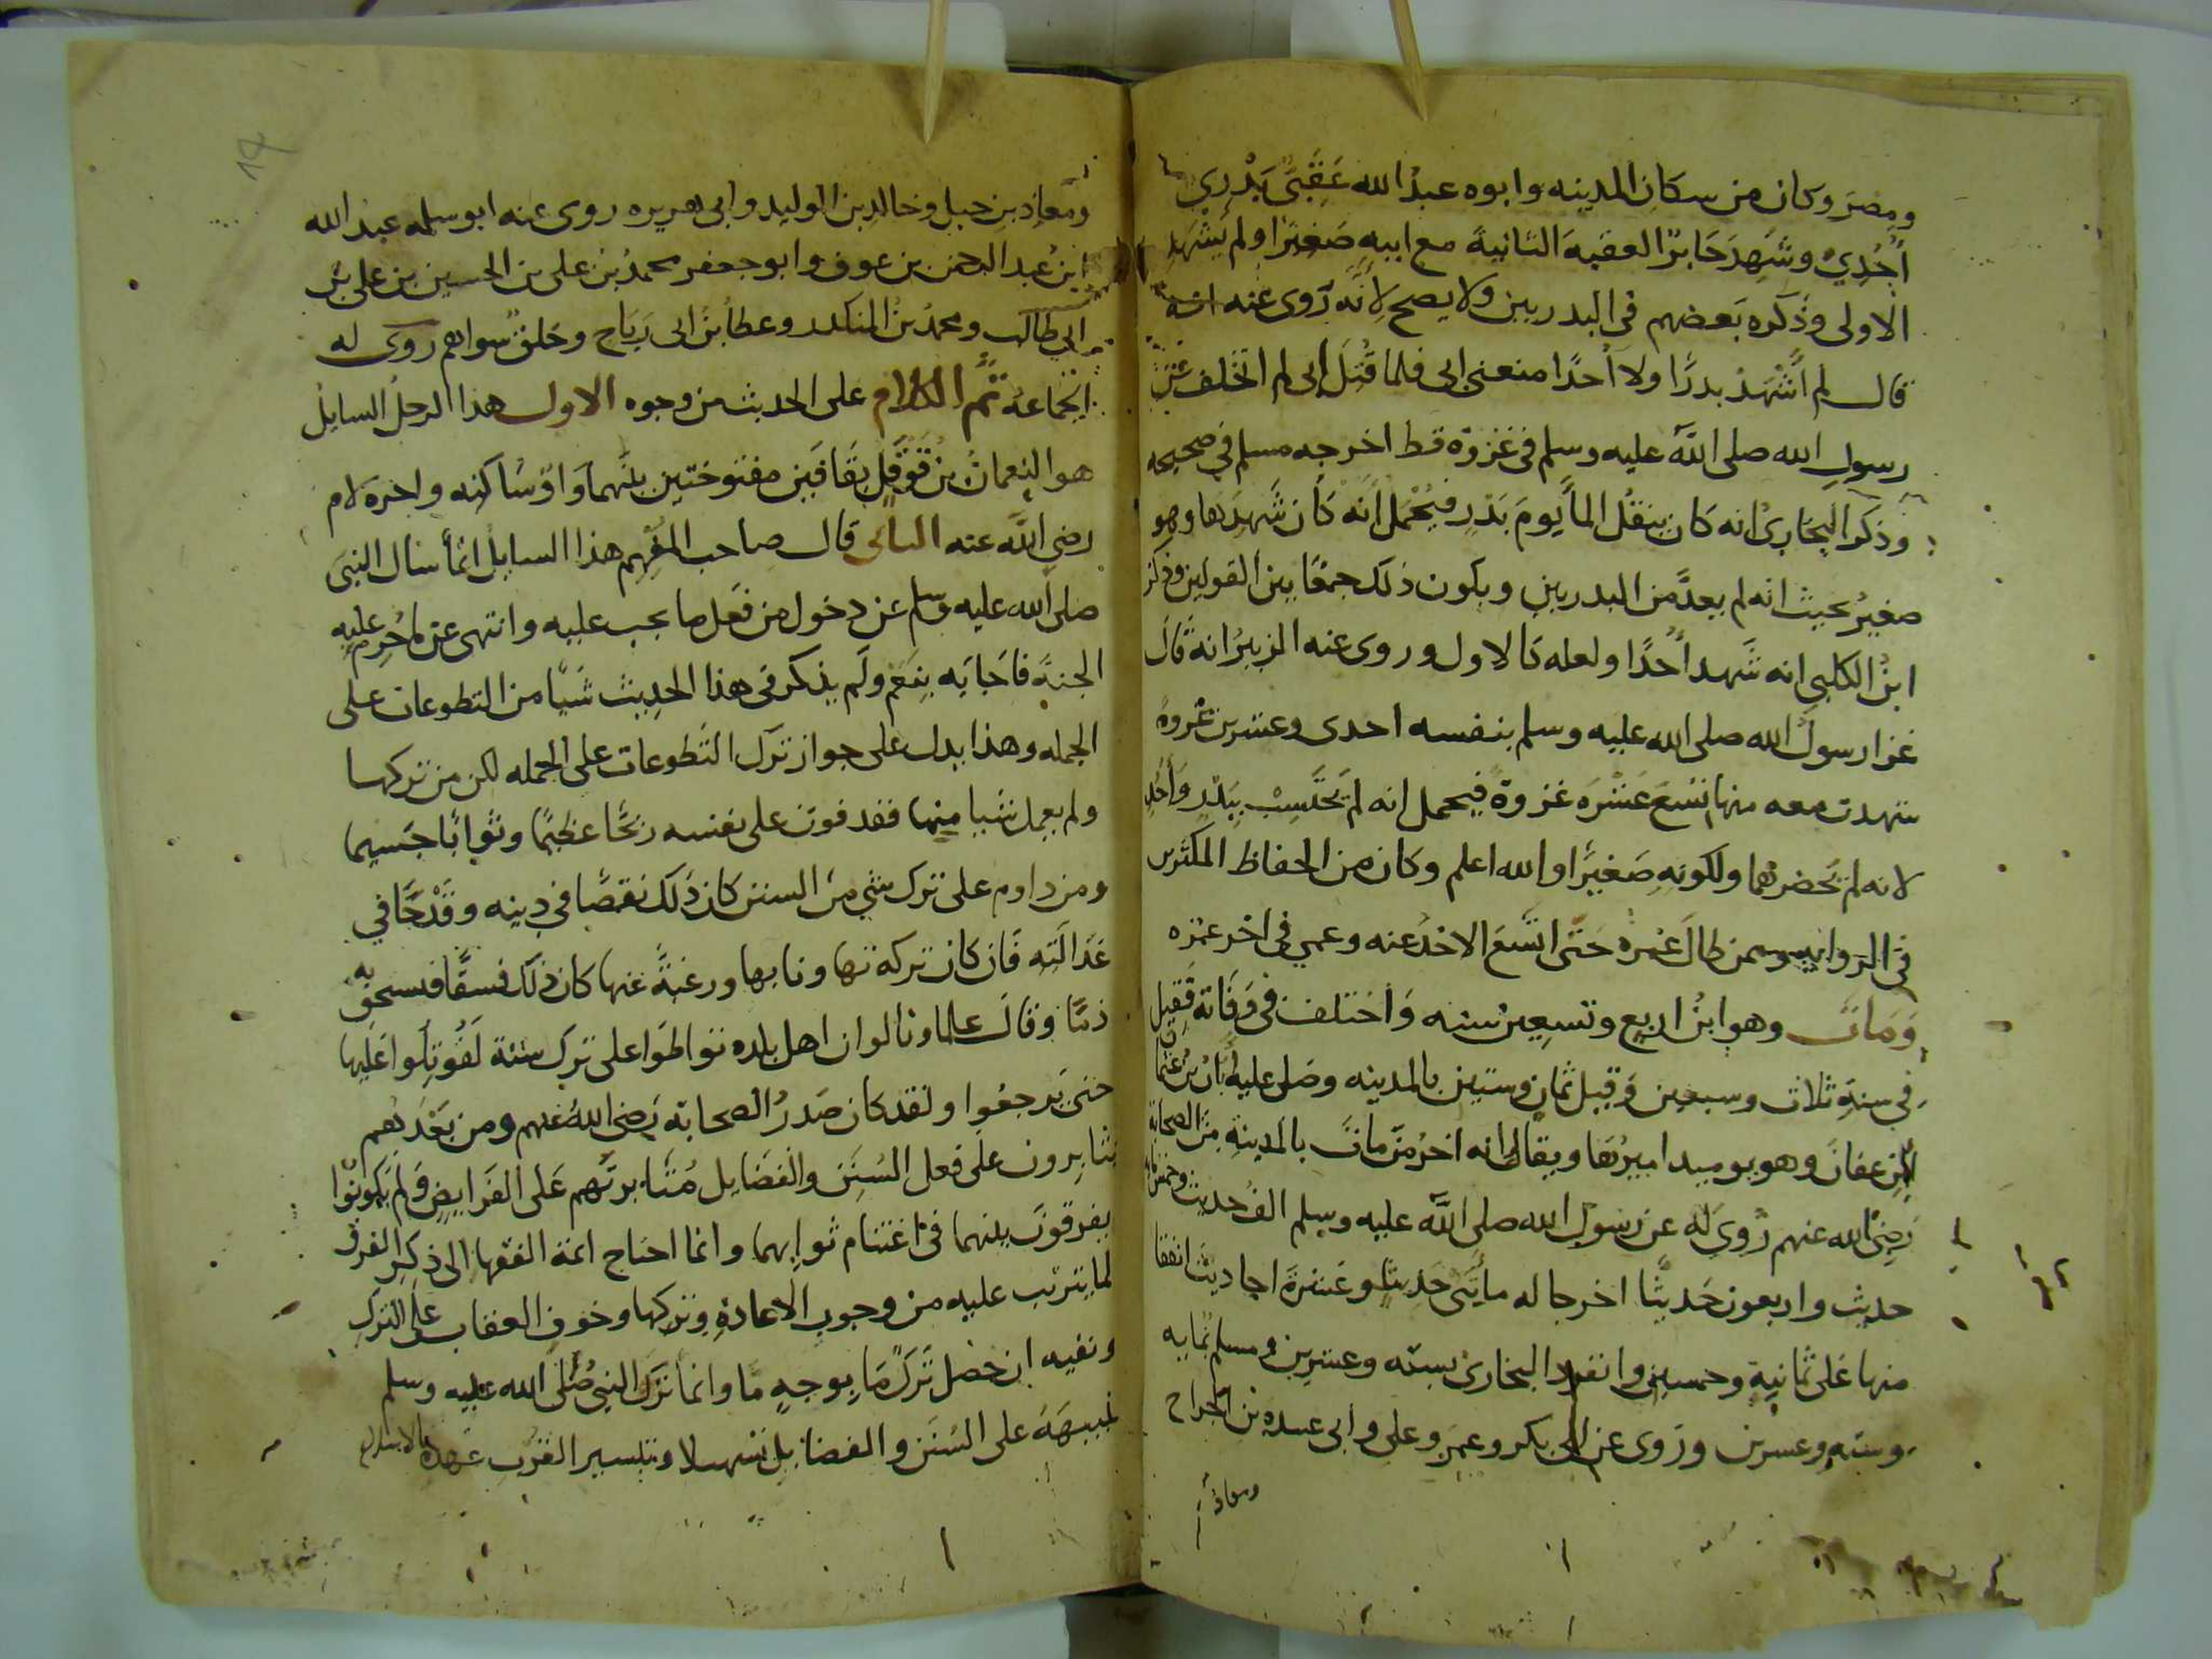 ومصر وكان من سكان المدينه وابوه عبد الله عَقَبيٌ بَدْرِي
أُحُدِيٌ وشَهِدَ جَابرٌ العقبه الثانيةَ مع ابيهِ صَغيرًا ولم يَشْهَدِ
الاولى وذكره بَعضهم في البدريين ولا يصح لانَّه رَوى عنه انه
قال لم أَشْهَدْ بدرًا ولا أُحدًا منعني ابي فلما قُتِلَ ابي لم اتخلف عن
رسول الله صلى اللّه عليه وسلم في غزوة قط اخرجه مسلم في صحيحه
وذكر البخاريُ انه كان ينقلُ الما يَومَ بَدْرٍ فيُحْمَل انَّه كان شَهِدَها وهو
صغيرٌ بحيث انه لم يعدَّ من البدريين ويكون ذلك جمعًا بين القولين وذكر
ابنُ الكلبي انه شَهد أُحُدًا ولعله كالاول وروى عنه الزبيرُ انهُ قال
غزا رسولُ الله صلى الله عليه وسلم بنفسه احدى وعشرين غزوةً
شهدت معه منها تسْعَ عَشْرَه غزوةً فيحمل انه لم يَحْتَسِبْ بِبَدْرٍ وَأُحُدٍ
لانه لم يحضرهما ولكونهِ صَغيرًا والله اعلم وكان من الحفاظ المكثرين
في الروايه وممن طالَ عُمره حَتَّى اتسَعَ الاخذُ عنه وعمي في اخر عمره
وَمَات وهو ابنُ اربع وتسعِين سنه وَاختلف في وَفَاتهِ فقيل
في سنةِ ثلاث وسبعين وقيل ثمانٍ وستين بالمدينه وصَلى عليه أَبَانُ بنُ عُثْمَان
ابن عفان وهو يوميد اميرُها ويقال انه اخرُ من مات بالمدينهِ مِنَ الصحابه
رَضِيَ الله عنهم رُوِيَ له عن رسول الله صلى اللّه عليه وسلم الفُ حديث وخمس مايه
حديث واربعون حَديثًا اخرجا له مأيتَي حَديثٍ وعَشرَةَ احاديث اتفقا
منها عَلى ثمانيةٍ وخمسين وانفرد البخارى بستّه وعشرين ومسلم بمايه
وسته وعشرين ورَوى عن ابى بكر وعمر وعلى وابى عبيده بن الجراح
ومعاذ
ومعاذِ بنِ جبل وخالدِ بن الوليد وابى هريره روى عنه ابو سلمه عبد الله
ابنُ عبد الرحمن بن عوف وابو جعفر محمدُ بنُ على بن الحسين بن على بن
ابي طالب ومحمدُ بنُ المنكدر وعطا بنُ ابى رَبَاح وخلقٌ سواهم روى له
الجماعهُ ثمَّ الكلام على الحديث من وجوه الاول هذا الرجلُ السايلُ
هو النعمانُ بنُ قَوْقَلٍ بقافين مفتوحتين بينهما وَاوٌ سَاكنه واخره لام
رضى اللّه عنه الثاني قال صاحب المُفْهِم هذا السايلُ انمأ سَال النبيَ
صلى الله عليه وسلم عن دخول من فعل ما يجب عليه وانتهى عن ما حُرم عليه
الجنةَ فاجابه بنعم ولم يذكر في هذا الحديث شيًا من التطوعات على
الجمله وهذا يدل على جواز ترك التَطوعات على الجمله لكن من تركها
ولم يعمل شيا منها فقد فوت على نفسه ربحًا عظيمًا وثوابًا جَسيما
ومن داوم على ترك شيٍ من السنن كان ذلك نقصًا في دِينه وقَدْحًا في
عَدالته فان كان تركه تهاونا بها ورغبةً عنها كان ذلك فسقًا فيستحق به
ذمًّا وقال علماونا لو ان اهل بلده تواطَوا على ترك سنّة لقُوتِلُوا عليها
حتى يَرجعُوا ولقد كان صَدرُ الصحابه رضى اللهُ عنهم ومن بَعْدَهُم
يثابِرون على فعل السُنَن والفضايل مُثَابرتَهم عَلى الفَرايض وَلم يَكونُوا
يفرقون بينهما في اغتنام ثوابِهما وانما احتاج ائمة الفقها الى ذِكرِ الفرق
لما يترتب عليه من وجوب الاعادةِ وتركها وخوف العقاب على الترك
ونفيه ان حَصَل تَركٌ مَا بوجهٍ ما وانما تَرَكَ النبيُ صلى الله عليه وسلم
تنبيهَهُ على السُنَن والفضايل تسهيلا وتيسير القرب عهدهُ بالاسلام